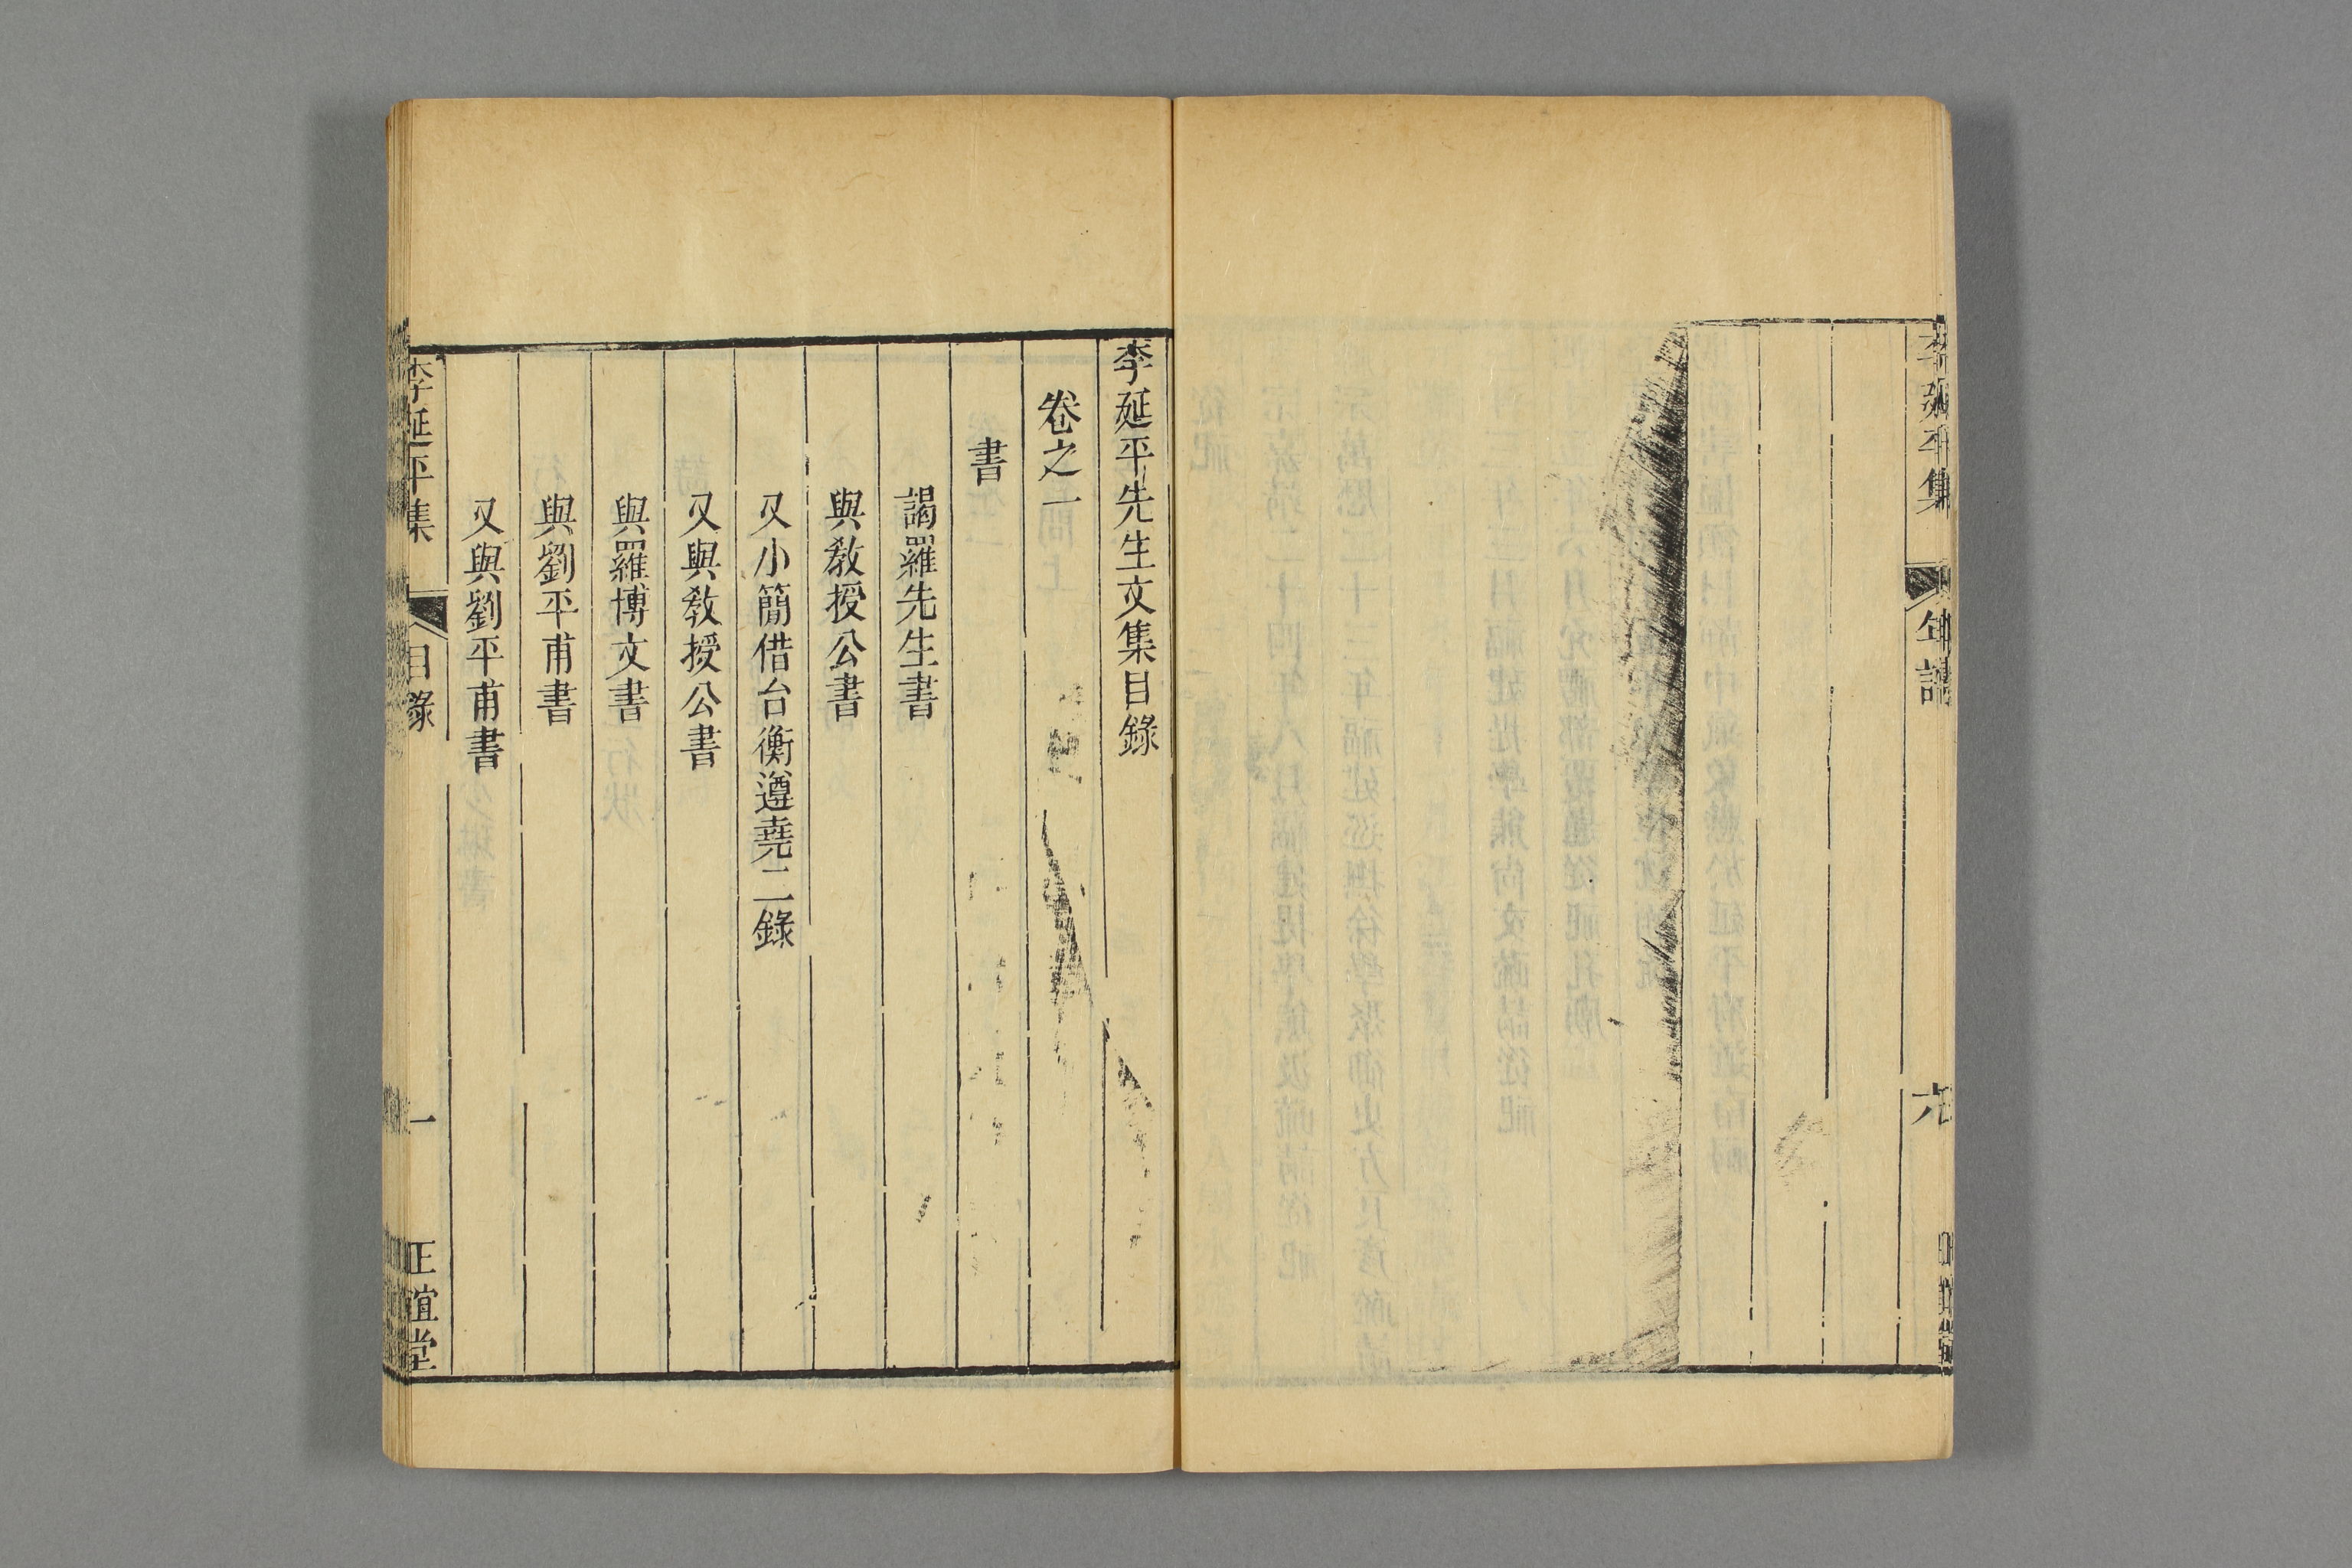 李延平集
年譜
六
李延平先生文集目錄
卷之一
書
謁羅先生書
與教授公書
又小簡借台衡遵堯二錄
又與教授公書
與羅博文書
與劉平甫書
又與劉平甫書
李延平集
目錄
一
正誼堂